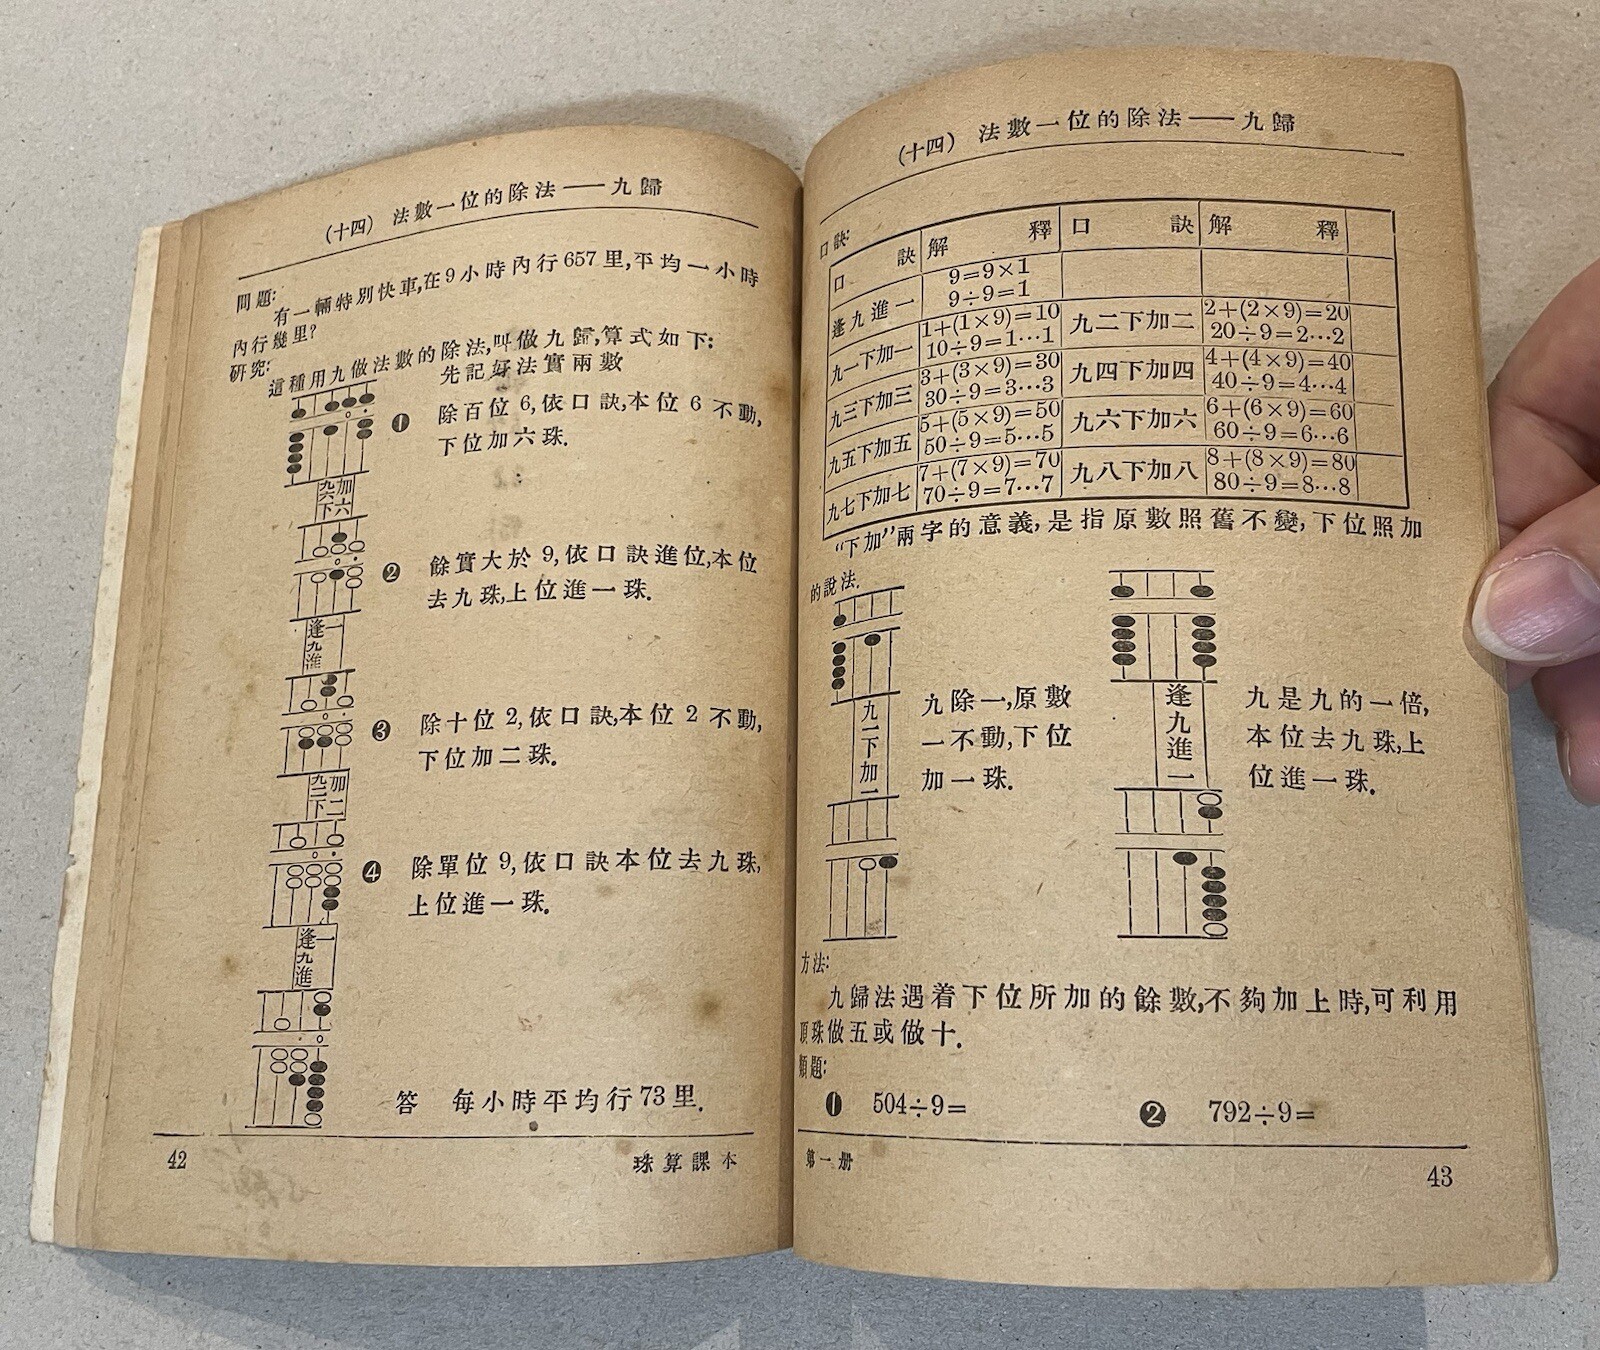 (十四) 法數一位的除法——九歸
問題:
有一輛特別快車,在9小時內行657里,平均一小時
內行幾里?
研究:
這種用九做法數的除法,叫做九歸,算式如下:
先記好法實兩數
❶ 除百位6,依口訣,本位6不動,
下位加六珠.
九六下加六
❷ 餘實大於9,依口訣進位,本位
去九珠,上位進一珠.
逢九進一
❸ 除十位2,依口訣,本位2不動,
下位加二珠.
九二下加二
❹ 除單位9,依口訣本位去九珠,
上位進一珠.
逢九進一
答 每小時平均行73里.
42 珠算課本
(十四) 法數一位的除法——九歸
口訣:
口訣 解釋 口訣 解釋
逢九進一 9=9×1
9÷9=1
九一下加一 1+(1×9)=10 九二下加二 2+(2×9)=20
10÷9=1…1 20÷9=2…2
九三下加三 3+(3×9)=30 九四下加四 4+(4×9)=40
30÷9=3…3 40÷9=4…4
九五下加五 5+(5×9)=50 九六下加六 6+(6×9)=60
50÷9=5…5 60÷9=6…6
九七下加七 7+(7×9)=70 九八下加八 8+(8×9)=80
70÷9=7…7 80÷9=8…8
“下加”兩字的意義,是指原數照舊不變,下位照加
的說法.
九一下加一
九除一,原數
一不動,下位
加一珠.
逢九進一
九是九的一倍,
本位去九珠,上
位進一珠.
方法:
九歸法遇着下位所加的餘數,不夠加上時,可利用
頂珠做五或做十.
類題:
❶ 504÷9= ❷ 792÷9=
第一册 43